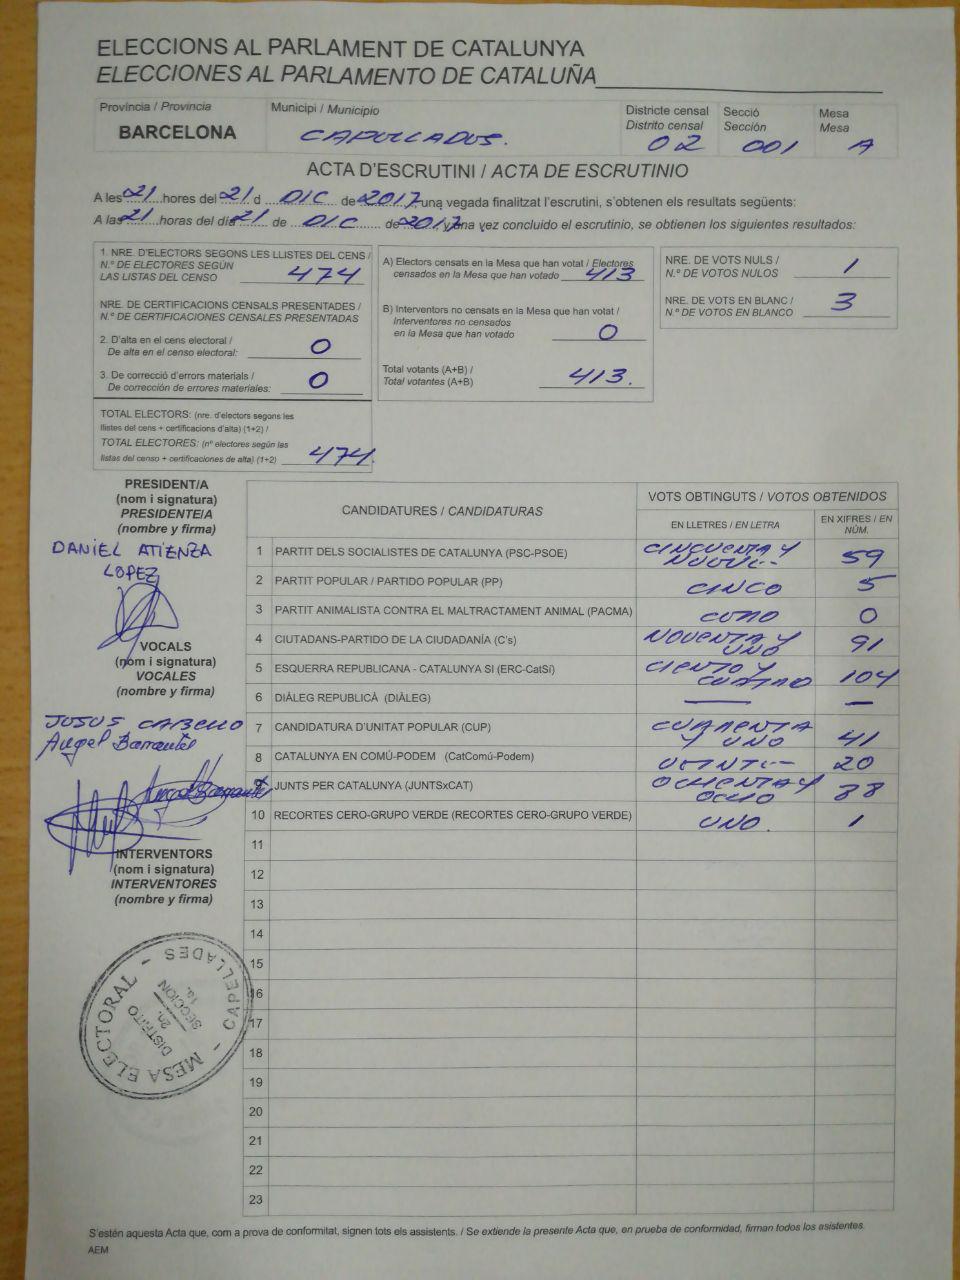 ELECCIONS AL PARLAMENT DE CATALUNYA
ELECCIONES AL PARLAMENTO DE CATALUÑA
Província / Provincia
BARCELONA
Municipi / Municipio
CAPELLADES.
Districte censal
Distrito censal
02
Secció
Sección
001
Mesa
Mesa
A
ACTA D'ESCRUTINI / ACTA DE ESCRUTINIO
A les 21 hores del 21 d DIC de 2017, una vegada finalitzat l'escrutini, s'obtenen els resultats següents:
A las 21 horas del día 21 de DIC de 2017, y una vez concluido el escrutinio, se obtienen los siguientes resultados:
1. NRE. D'ELECTORS SEGONS LES LLISTES DEL CENS /
N.º DE ELECTORES SEGÚN
LAS LISTAS DEL CENSO 474
NRE. DE CERTIFICACIONS CENSALS PRESENTADES /
N.º DE CERTIFICACIONES CENSALES PRESENTADAS
2. D'alta en el cens electoral /
De alta en el censo electoral: 0
3. De correcció d'errors materials /
De corrección de errores materiales: 0
TOTAL ELECTORS: (nre. d'electors segons les
llistes del cens + certificacions d'alta) (1+2) /
TOTAL ELECTORES: (nº electores según las
listas del censo + certificaciones de alta) (1+2) 474
A) Electors censats en la Mesa que han votat / Electores
censados en la Mesa que han votado 413
B) Interventors no censats en la Mesa que han votat /
Interventores no censados
en la Mesa que han votado 0
Total votants (A+B) /
Total votantes (A+B) 413.
NRE. DE VOTS NULS /
N.º DE VOTOS NULOS 1
NRE. DE VOTS EN BLANC /
N.º DE VOTOS EN BLANCO 3
PRESIDENT/A
(nom i signatura)
PRESIDENTE/A
(nombre y firma)
DANIEL ATIENZA
LOPEZ
VOCALS
(nom i signatura)
VOCALES
(nombre y firma)
JOSUS CABELLO
Angel Barrantes
INTERVENTORS
(nom i signatura)
INTERVENTORES
(nombre y firma)
MESA ELECTORAL - CAPELLADES -
DISTRITO
2n.
SECCION
1a.
CANDIDATURES / CANDIDATURAS
VOTS OBTINGUTS / VOTOS OBTENIDOS
EN LLETRES / EN LETRA
EN XIFRES / EN NÚM.
1 PARTIT DELS SOCIALISTES DE CATALUNYA (PSC-PSOE) CINCUENTA Y NUEVE 59
2 PARTIT POPULAR / PARTIDO POPULAR (PP) CINCO 5
3 PARTIT ANIMALISTA CONTRA EL MALTRACTAMENT ANIMAL (PACMA) CERO 0
4 CIUTADANS-PARTIDO DE LA CIUDADANÍA (C's) NOVENTA Y UNO 91
5 ESQUERRA REPUBLICANA - CATALUNYA SI (ERC-CatSí) CIENTO Y CUATRO 104
6 DIÀLEG REPUBLICÀ (DIÀLEG) — —
7 CANDIDATURA D'UNITAT POPULAR (CUP) CUARENTA Y UNO 41
8 CATALUNYA EN COMÚ-PODEM (CatComú-Podem) VEINTE 20
9 JUNTS PER CATALUNYA (JUNTSxCAT) OCHENTA Y OCHO 88
10 RECORTES CERO-GRUPO VERDE (RECORTES CERO-GRUPO VERDE) UNO. 1
11
12
13
14
15
16
17
18
19
20
21
22
23
S'estén aquesta Acta que, com a prova de conformitat, signen tots els assistents. / Se extiende la presente Acta que, en prueba de conformidad, firman todos los asistentes.
AEM